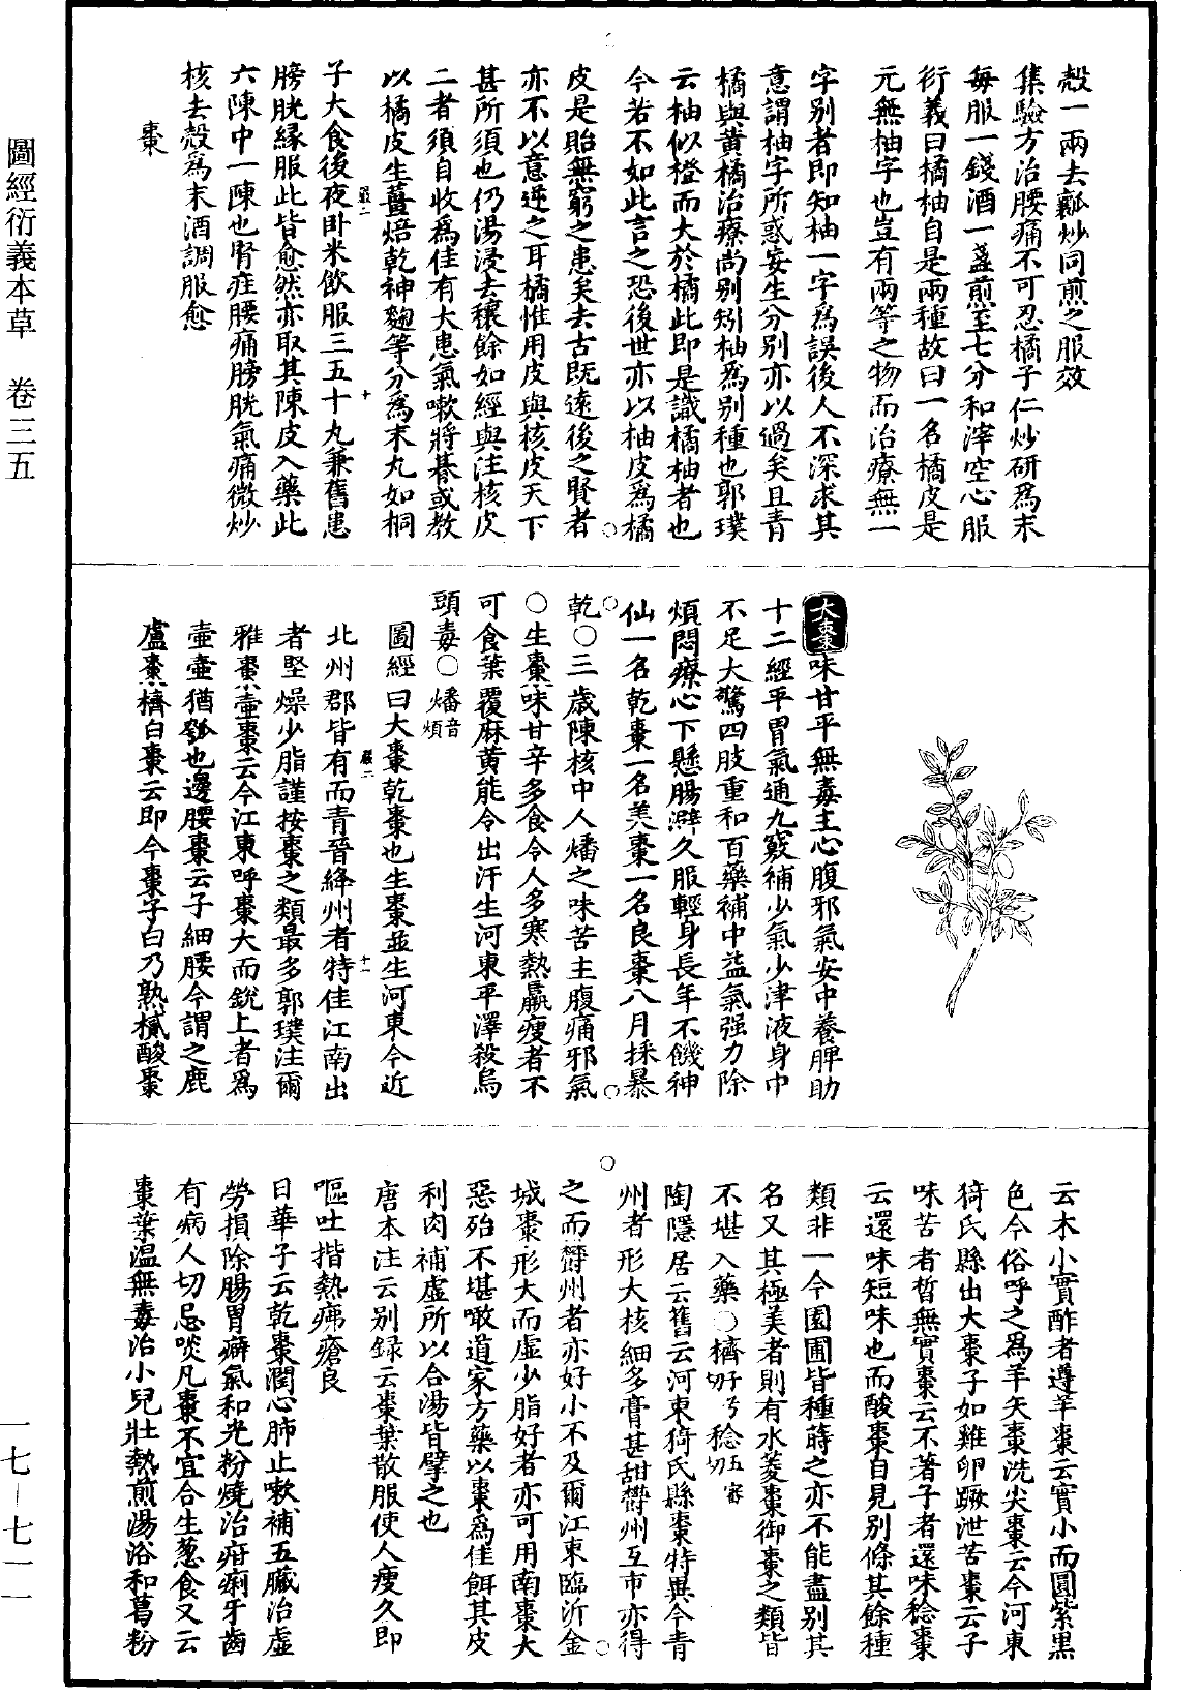 圖經衍義本草　卷三五
殼一兩去瓤炒同煎之服效
集驗方治腰痛不可忍橘子仁炒研為末
每服一錢酒一盞煎至七分和滓空心服
衍義曰橘柚自是兩種故曰一名橘皮是
元無柚字也豈有兩等之物而治療無一
字別者即知柚一字為誤後人不深求其
意謂柚字所惑妄生分別亦以過矣且青
橘與黃橘治療尚別矧柚為別種也郭璞
云柚似橙而大於橘此即是識橘柚者也
今若不如此言之恐後世亦以柚皮為橘
皮是貽無窮之患矣去古既遠後之賢者
亦不以意逆之耳橘惟用皮與核皮天下
甚所須也仍湯浸去穰餘如經與注核皮
二者須自收為佳有大患氣嗽將朞或教
以橘皮生薑焙乾神麴等分為末丸如桐
子大食後夜卧米飲服三五十丸兼舊患
膀胱緣服此皆愈然亦取其陳皮入藥此
六陳中一陳也腎疰腰痛膀胱氣痛微炒
核去殼為末酒調服愈
棗
大棗味甘平無毒主心腹邪氣安中養脾助
十二經平胃氣通九竅補少氣少津液身中
不足大驚四肢重和百藥補中益氣强力除
煩悶療心下懸腸澼久服輕身長年不饑神
仙一名乾棗一名美棗一名良棗八月採暴
乾○三歲陳核中人燔之味苦主腹痛邪氣
○生棗味甘辛多食令人多寒熱羸瘦者不
可食葉覆麻黃能令出汗生河東平澤殺烏
頭毒○燔音煩
圖經曰大棗乾棗也生棗並生河東今近
北州郡皆有而青晉絳州者特佳江南出
者堅燥少脂謹按棗之類最多郭璞注爾
雅棗壺棗云今江東呼棗大而銳上者為
壺壺猶瓠也邊腰棗云子細腰今謂之鹿
盧棗櫅白棗云即今棗子白乃熟樲酸棗
云木小實酢者遵羊棗云實小而圓紫黑
色今俗呼之為羊矢棗洗尖棗云今河東
猗氏縣出大棗子如雞卵蹶泄苦棗云子
味苦者晳無實棗云不著子者還味稔棗
云還味短味也而酸棗自見別條其餘種
類非一今園圃皆種蒔之亦不能盡別其
名又其極美者則有水菱棗御棗之類皆
不堪入藥○櫅子兮切稔五審切
陶隱居云舊云河東猗氏縣棗特異今青
州者形大核細多膏甚甜鬱州互市亦得
之而鬱州者亦好小不及爾江東臨沂金
城棗形大而虛少脂好者亦可用南棗大
惡殆不堪噉道家方藥以棗為佳餌其皮
利肉補虛所以合湯皆擘之也
唐本注云別錄云棗葉散服使人瘦久即
嘔吐揩熱疿瘡良
日華子云乾棗潤心肺止嗽補五臟治虛
勞損除腸胃癖氣和光粉燒治疳痢牙齒
有病人切忌啖凡棗不宜合生葱食又云
棗葉温無毒治小兒壯熱煎湯浴和葛粉
一七－七一一